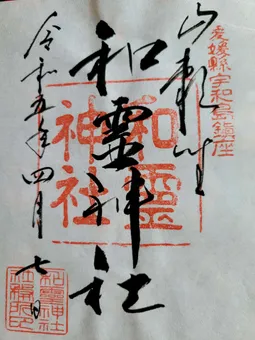 愛媛縣宇和島鎮座
奉拝
和霊神社
和靈
神社
令和五年四月
七日
和靈神社
社務所印